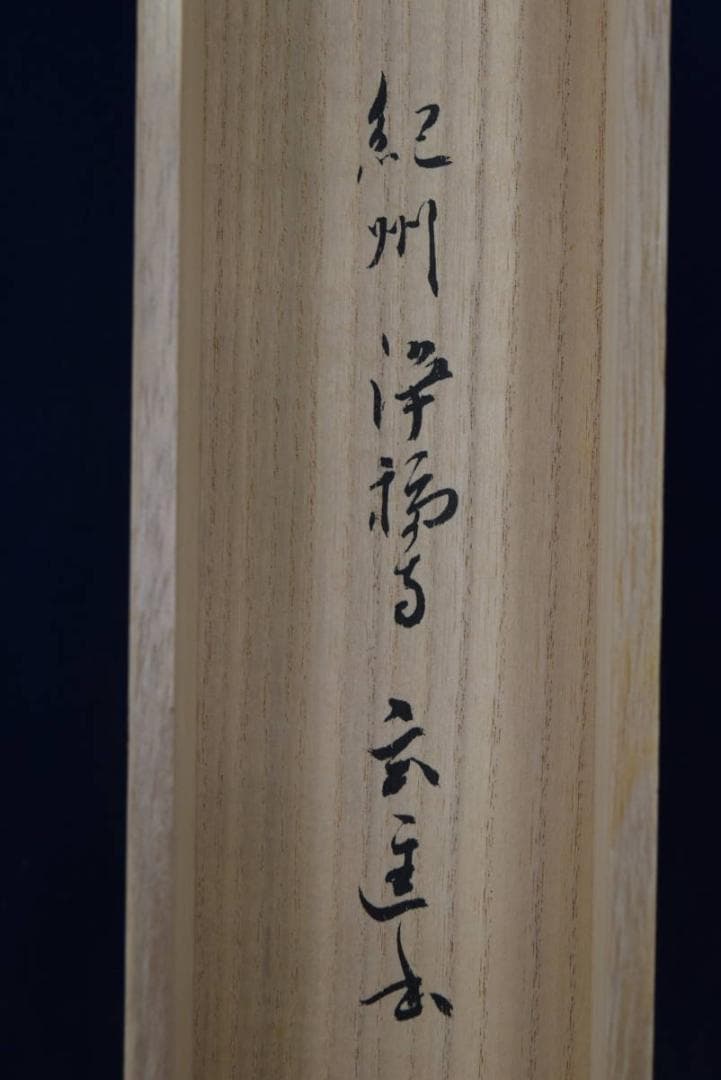 紀州 浄福寺 玄匡書